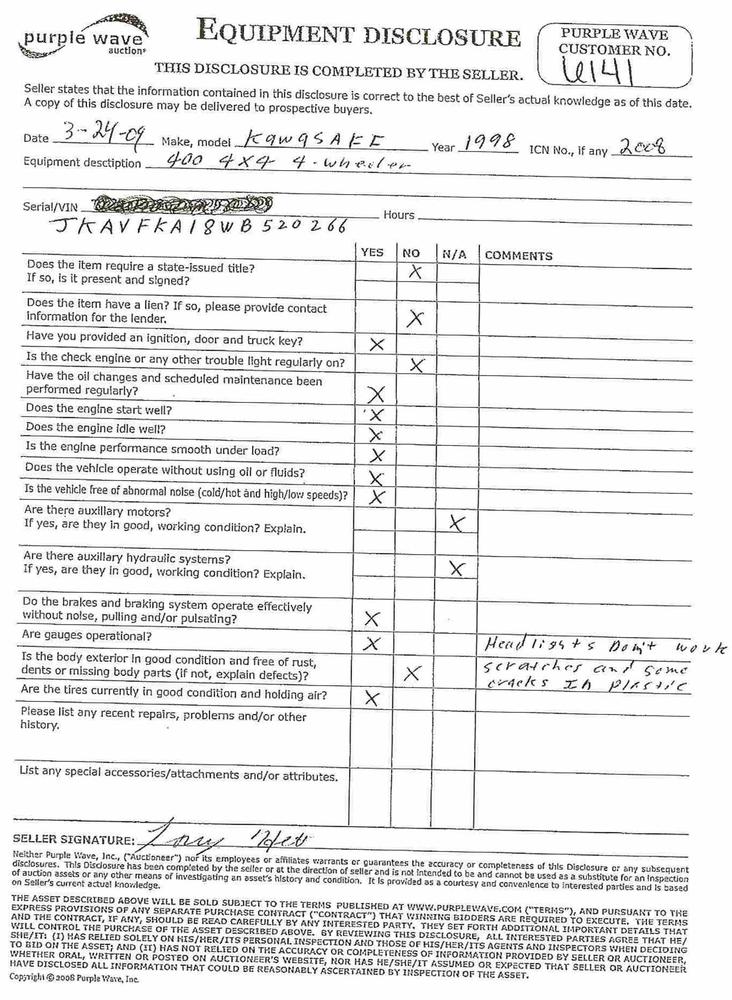 purple wave
auction
EQUIPMENT DISCLOSURE
PURPLE WAVE
CUSTOMER NO.
U141
THIS DISCLOSURE IS COMPLETED BY THE SELLER.
Seller states that the information contained in this disclosure is correct to the best of Seller's actual knowledge as of this date.
A copy of this disclosure may be delivered to prospective buyers.
Date 3-24-09 Make, model KAWASAKI Year 1998 ICN No., if any 2008
Equipment desctiption 400 4X4 4-wheeler
Serial/VIN Hours
JKAVFKA18WB520266
YES NO N/A COMMENTS
Does the item require a state-issued title? X
If so, is it present and signed?
Does the item have a lien? If so, please provide contact
information for the lender. X
Have you provided an ignition, door and truck key? X
Is the check engine or any other trouble light regularly on? X
Have the oil changes and scheduled maintenance been
performed regularly? X
Does the engine start well? X
Does the engine idle well? X
Is the engine performance smooth under load? X
Does the vehicle operate without using oil or fluids? X
Is the vehicle free of abnormal noise (cold/hot and high/low speeds)? X
Are there auxillary motors?
If yes, are they in good, working condition? Explain. X
Are there auxillary hydraulic systems?
If yes, are they in good, working condition? Explain. X
Do the brakes and braking system operate effectively
without noise, pulling and/or pulsating? X
Are gauges operational? X Headlights Don't work
Is the body exterior in good condition and free of rust,
dents or missing body parts (if not, explain defects)? X scratches and some
cracks In plastic
Are the tires currently in good condition and holding air? X
Please list any recent repairs, problems and/or other
history.
List any special accessories/attachments and/or attributes.
SELLER SIGNATURE:
Neither Purple Wave, Inc., ("Auctioneer") nor its employees or affiliates warrants or guarantees the accuracy or completeness of this Disclosure or any subsequent
disclosures. This Disclosure has been completed by the seller or at the direction of seller and is not intended to be and cannot be used as a substitute for an inspection
of auction assets or any other means of investigating an asset's history and condition. It is provided as a courtesy and convenience to interested parties and is based
on Seller's current actual knowledge.
THE ASSET DESCRIBED ABOVE WILL BE SOLD SUBJECT TO THE TERMS PUBLISHED AT WWW.PURPLEWAVE.COM ("TERMS"), AND PURSUANT TO THE
EXPRESS PROVISIONS OF ANY SEPARATE PURCHASE CONTRACT ("CONTRACT") THAT WINNING BIDDERS ARE REQUIRED TO EXECUTE. THE TERMS
AND THE CONTRACT, IF ANY, SHOULD BE READ CAREFULLY BY ANY INTERESTED PARTY. THEY SET FORTH ADDITIONAL IMPORTANT DETAILS THAT
WILL CONTROL THE PURCHASE OF THE ASSET DESCRIBED ABOVE. BY REVIEWING THIS DISCLOSURE, ALL INTERESTED PARTIES AGREE THAT HE/
SHE/IT: (I) HAS RELIED SOLELY ON HIS/HER/ITS PERSONAL INSPECTION AND THOSE OF HIS/HER/ITS AGENTS AND INSPECTORS WHEN DECIDING
TO BID ON THE ASSET; AND (II) HAS NOT RELIED ON THE ACCURACY OR COMPLETENESS OF INFORMATION PROVIDED BY SELLER OR AUCTIONEER,
WHETHER ORAL, WRITTEN OR POSTED ON AUCTIONEER'S WEBSITE, NOR HAS HE/SHE/IT ASSUMED OR EXPECTED THAT SELLER OR AUCTIONEER
HAVE DISCLOSED ALL INFORMATION THAT COULD BE REASONABLY ASCERTAINED BY INSPECTION OF THE ASSET.
Copyright © 2008 Purple Wave, Inc.